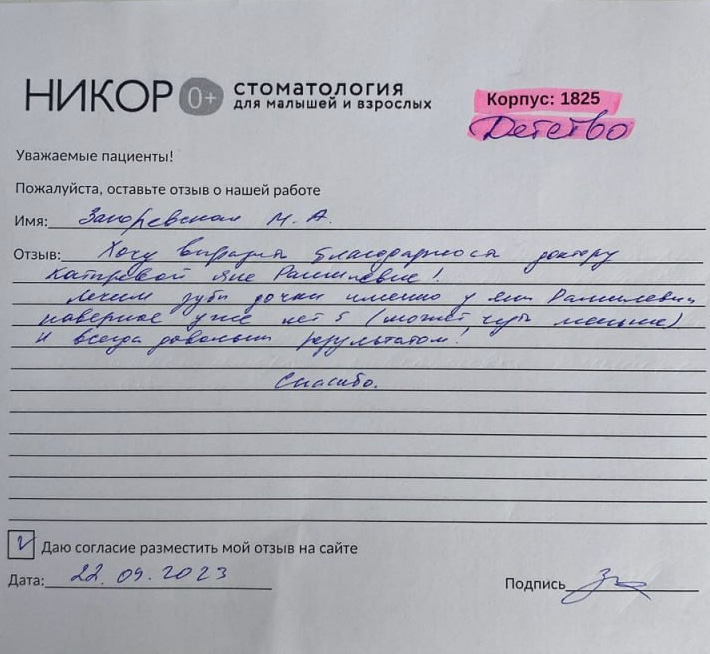 НИКОР 0+ СТОМАТОЛОГИЯ
ДЛЯ МАЛЫШЕЙ И ВЗРОСЛЫХ
Корпус: 1825
Детство
Уважаемые пациенты!
Пожалуйста, оставьте отзыв о нашей работе
Имя: М. А.
Отзыв: Хочу выразить благодарность доктору
Яне Рамилевне!
Лечим зубы дочки именно у Яны Рамилевны
наверное уже лет 5 (может, чуть меньше)
и всегда довольны результатом!
Спасибо.
Даю согласие разместить мой отзыв на сайте
Дата: 22.09.2023
Подпись